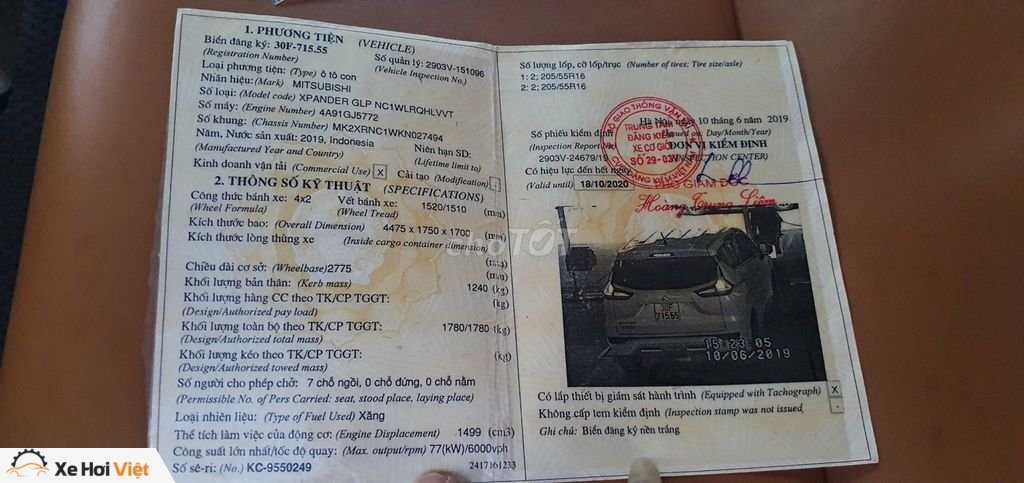 1. PHƯƠNG TIỆN (VEHICLE)
Biển đăng ký: 30F-715.55 Số quản lý: 2903V-151096
(Registration Number) (Vehicle Inspection No.)
Loại phương tiện: (Type) ô tô con
Nhãn hiệu: (Mark) MITSUBISHI
Số loại: (Model code) XPANDER GLP NC1WLRQHLVVT
Số máy: (Engine Number) 4A91GJ5772
Số khung: (Chassis Number) MK2XRNC1WKN027494
Năm, Nước sản xuất: 2019, Indonesia Niên hạn SD:
(Manufactured Year and Country) (Lifetime limit to)
Kinh doanh vận tải (Commercial Use) X Cải tạo (Modification) -
2. THÔNG SỐ KỸ THUẬT (SPECIFICATIONS)
Công thức bánh xe: 4x2 Vết bánh xe: 1520/1510 (mm)
(Wheel Formula) (Wheel Tread)
Kích thước bao: (Overall Dimension) 4475 x 1750 x 1700 (mm)
Kích thước lòng thùng xe (Inside cargo container dimension)
(mm)
Chiều dài cơ sở: (Wheelbase) 2775 (mm)
Khối lượng bản thân: (Kerb mass) 1240 (kg)
Khối lượng hàng CC theo TK/CP TGGT: (kg)
(Design/Authorized pay load)
Khối lượng toàn bộ theo TK/CP TGGT: 1780/1780 (kg)
(Design/Authorized total mass)
Khối lượng kéo theo TK/CP TGGT: (kg)
(Design/Authorized towed mass)
Số người cho phép chở: 7 chỗ ngồi, 0 chỗ đứng, 0 chỗ nằm
(Permissible No. of Pers Carried: seat, stood place, laying place)
Loại nhiên liệu: (Type of Fuel Used) Xăng
Thể tích làm việc của động cơ: (Engine Displacement) 1499 (cm3)
Công suất lớn nhất/tốc độ quay: (Max. output/rpm) 77(kW)/6000vph
Số sê-ri: (No.) KC-9550249 2417161233
Số lượng lốp, cỡ lốp/trục (Number of tires; Tire size/axle)
1: 2; 205/55R16
2: 2; 205/55R16
Hà Nội, ngày 10 tháng 6 năm 2019
Số phiếu kiểm định (Issued on: Day/Month/Year)
(Inspection Report No) ĐƠN VỊ KIỂM ĐỊNH
2903V-24679/19 (INSPECTION CENTER)
Có hiệu lực đến hết ngày
(Valid until) 18/10/2020 PHÓ GIÁM ĐỐC
Hoàng Trung Liêm
TRUNG TÂM
ĐĂNG KIỂM
XE CƠ GIỚI
SỐ 29-03V
CỤC ĐĂNG KIỂM VIỆT NAM
30F
71555
15 23 05
10/06/2019
Có lắp thiết bị giám sát hành trình (Equipped with Tachograph) X
Không cấp tem kiểm định (Inspection stamp was not issued) -
Ghi chú: Biển đăng ký nền trắng
chợTỐT
Xe Hơi Việt